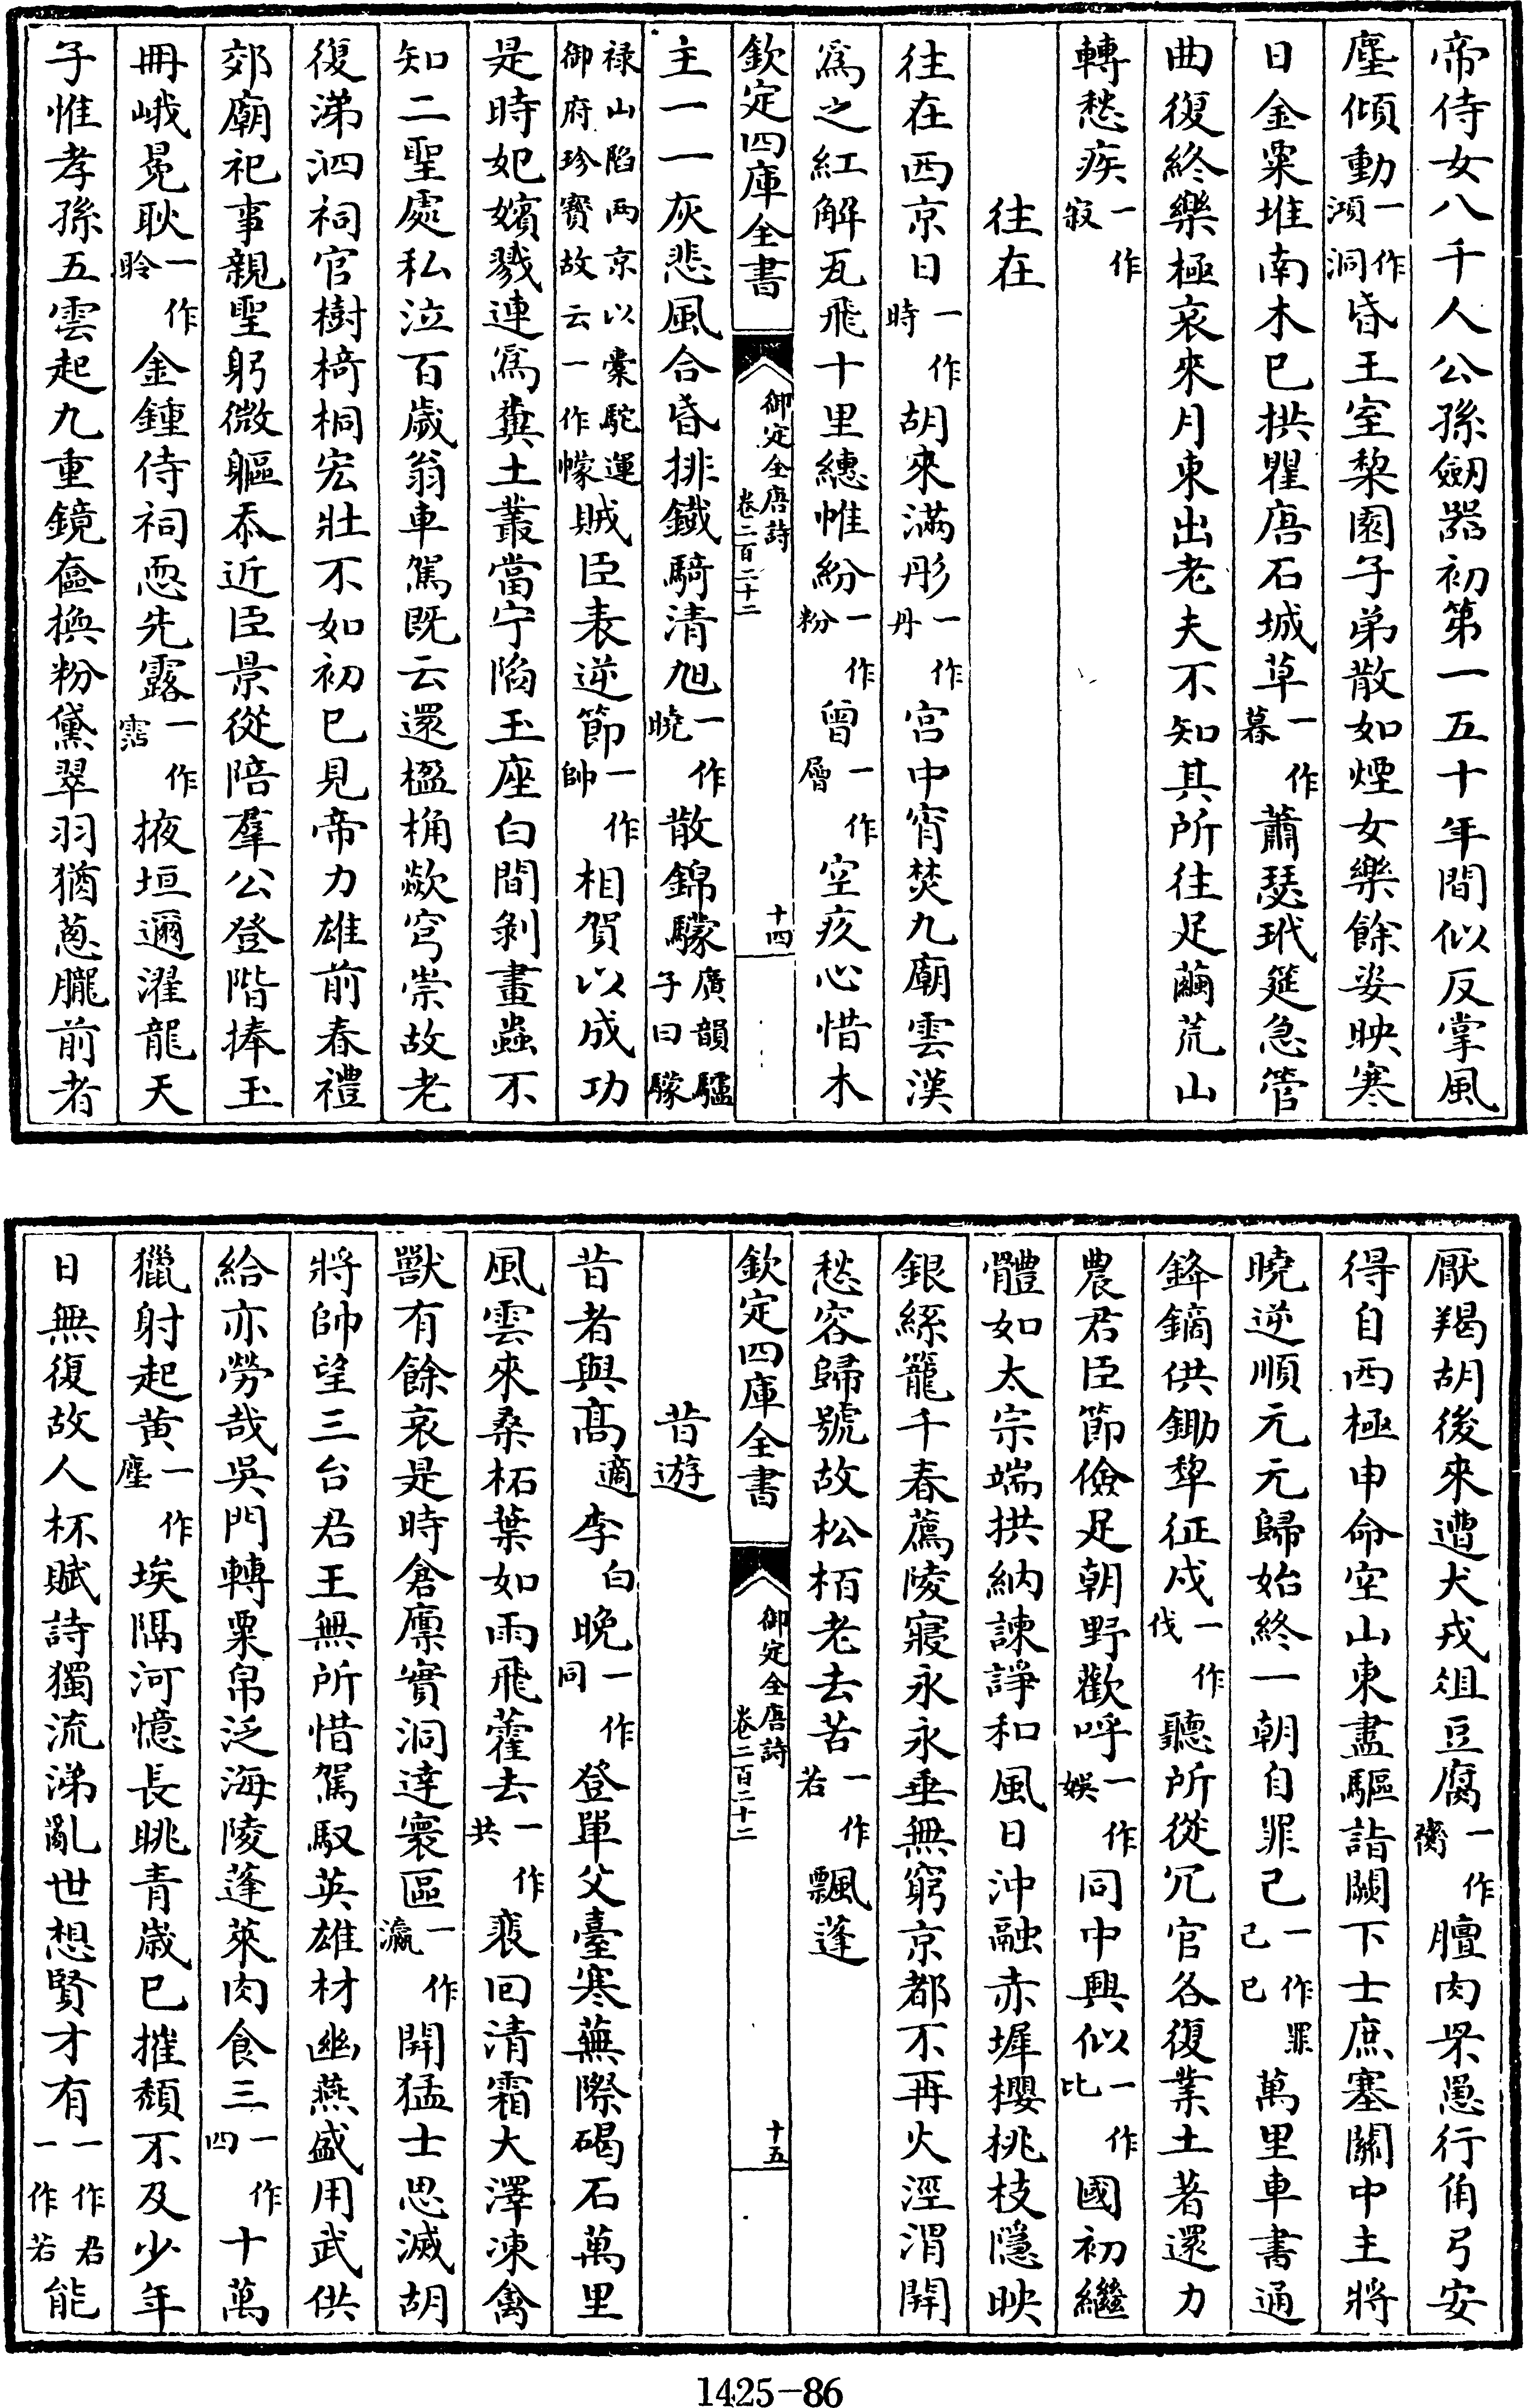 帝侍女八千人公孫劒器初第一五十年間似反掌風
塵傾動一作澒洞昏王室棃園子弟散如煙女樂餘姿映寒
日金粟堆南木已拱瞿唐石城草一作暮蕭瑟玳筵急管
曲復終樂極哀來月東出老夫不知其所往足繭荒山
轉愁疾一作寂
往在
往在西京日一作時胡來滿彤一作丹宮中宵焚九廟雲漢
為之紅解瓦飛十里繐帷紛一作粉曾一作層空疚心惜木
欽定四庫全書
御定全唐詩
卷二百二十二
十四
主一一灰悲風合昏排鐡騎清旭一作曉散錦驜廣韻驢子曰驜
祿山陷兩京以橐駝運御府珍寳故云一作幪賊臣表逆節一作帥相賀以成功
是時妃嬪戮連為糞土叢當宁陷玉座白間剥畫蟲不
知二聖處私泣百歲翁車駕既云還楹桷歘穹崇故老
復涕泗祠官樹椅桐宏壯不如初已見帝力雄前春禮
郊廟祀事親聖躬微軀忝近臣景從陪羣公登階捧玉
冊峨冕耿一作聆金鍾侍祠恧先露一作霑掖垣邇濯龍天
子惟孝孫五雲起九重鏡奩換粉黛翠羽猶蔥朧前者
厭羯胡後來遭犬戎俎豆腐一作臠膻肉罘罳行角弓安
得自西極申命空山東盡驅詣闕下士庶塞關中主將
曉逆順元元歸始終一朝自罪己一作罪己已萬里車書通
鋒鏑供鋤犂征戍一作伐聽所從冗官各復業土著還力
農君臣節儉足朝野歡呼一作娱同中興似一作比國初繼
體如太宗端拱納諫諍和風日沖融赤墀櫻桃枝隱映
銀絲籠千春薦陵寢永永垂無窮京都不再火涇渭開
愁容歸號故松栢老去苦一作若飄蓬
欽定四庫全書
御定全唐詩
卷二百二十二
十五
昔遊
昔者與高適李白晚一作同登單父臺寒蕪際碣石萬里
風雲來桑柘葉如雨飛藿去一作共裴回清霜大澤凍禽
獸有餘哀是時倉廪實洞達寰區一作瀛開猛士思滅胡
將帥望三台君王無所惜駕馭英雄材幽燕盛用武供
給亦勞哉吳門轉粟帛泛海陵蓬萊肉食三一作四十萬
獵射起黃一作塵埃隔河憶長眺青歲已摧頹不及少年
日無復故人杯賦詩獨流涕亂世想賢才有一作君一作若能
1425-86